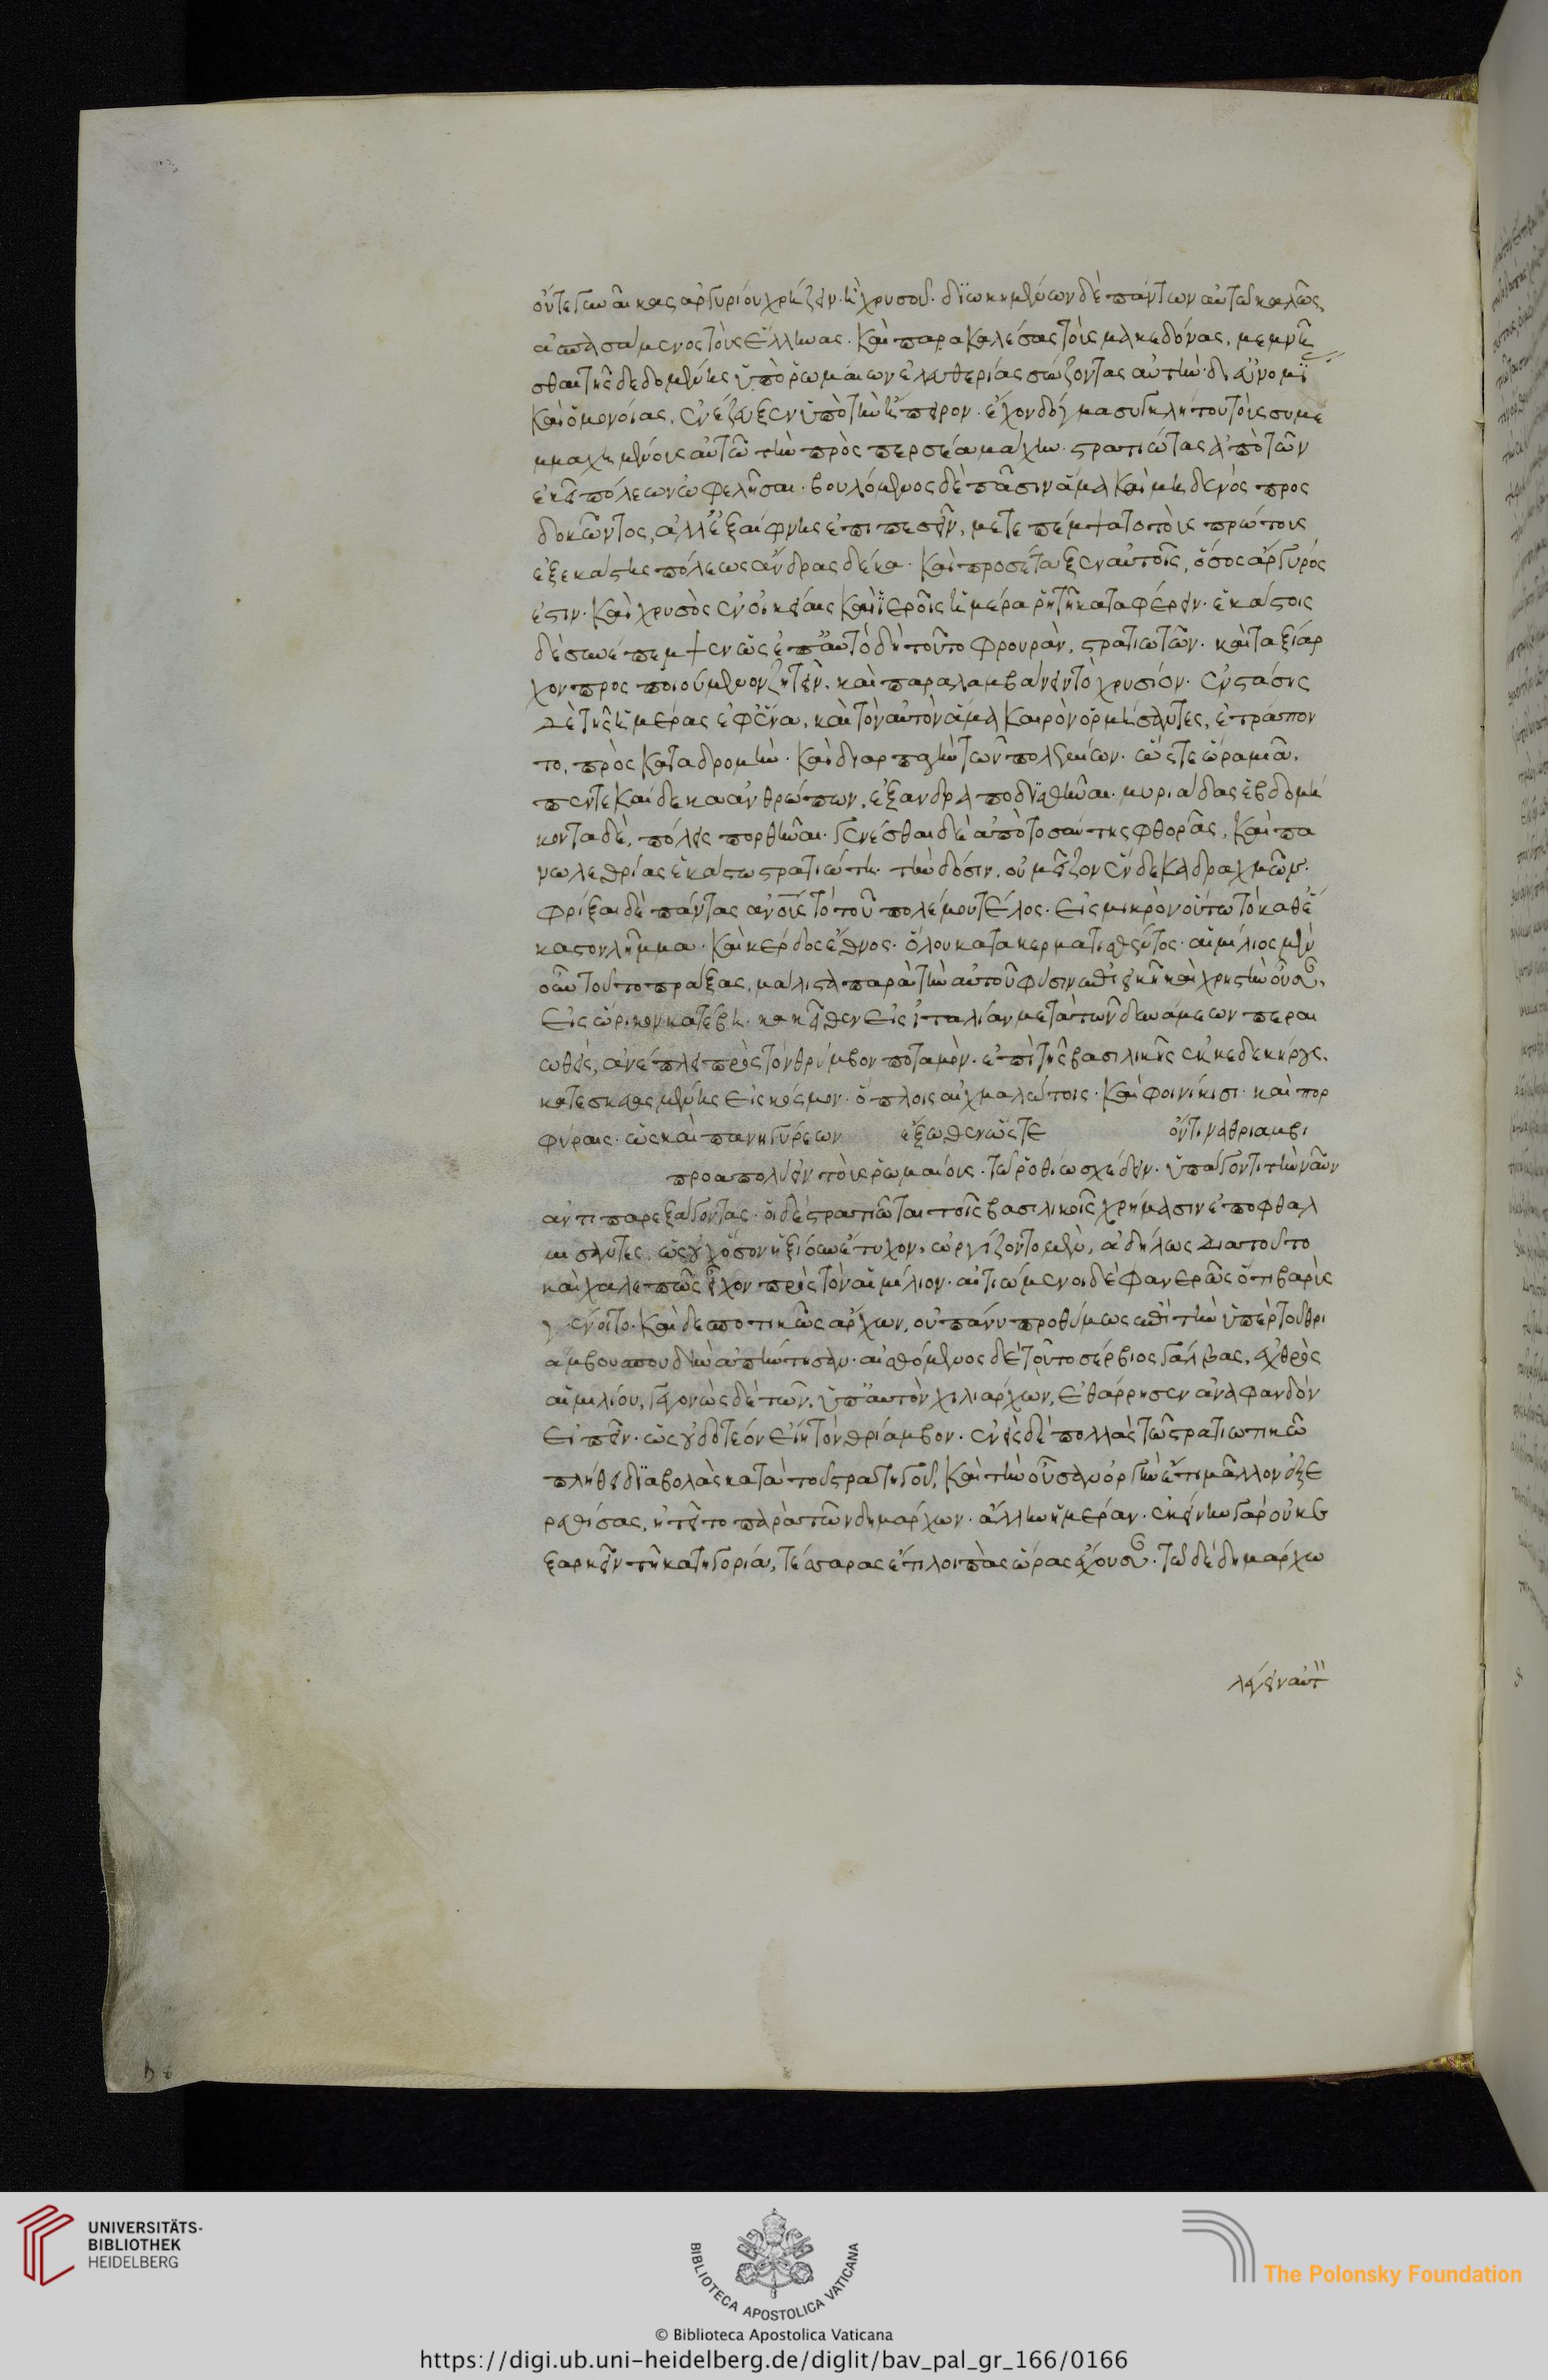 οὔτε γυναῖκας ἀργυρίου χρήζειν ἢ χρυσοῦ. διωκημένων δὲ πάντων αὐτῶ καλῶς,
ἀσπασάμενος τοὺς ἕλληνας. καὶ παρακαλέσας τοὺς μακεδόνας, μεμνῆ
σθαι τῆς δεδομένης ὑπὸ ῥωμαίων ἐλευθερίας σώζοντας αὐτὴν. δι' εὐνομί
καὶ ὁμονοίας, ἀνέζευξεν ὑπὸ τὴν ἤπειρον. ἔχων δόγμα συγκλήτου τοὺς συμμε
μμαχημένους αὐτῶ τὴν πρὸς περσέα μάχην. στρατιώτας ἀπὸ τῶν
ἐκεῖ πόλεων ὠφελῆσαι. βουλόμενος δὲ πᾶσιν ἅμα καὶ μηδενὸς προς
δοκῶντος, ἀλλ' ἐξαίφνης ἐπιπεσεῖν, μετεπέμψατο τοὺς πρώτους
ἐξ ἑκάστης πόλεως ἄνδρας δέκα. καὶ προσέταξεν αὐτοῖς, ὅσος ἄργυρός
ἐστιν. καὶ χρυσὸς ἐν οἰκείαις καὶ ἱεροῖς ἡμέρα ῥητῆ καταφέρειν. ἑκάστοις
δὲ συνέπεμψεν ὡς ἐπ' αὐτὸ δὴ τοῦτο φρουρὰν, στρατιωτῶν. καὶ ταξίαρ
χον προσποιούμενον ζητεῖν. καὶ παραλαμβάνειν τὸ χρυσίον. ἐνστάσης
δὲ τῆς ἡμέρας ἐφ' ἕνα, καὶ τὸν αὐτὸν ἅμα καιρὸν ὁρμήσαντες, ἐτράπον
το, πρὸς καταδρομὴν. καὶ διαρπαγὴν τῶν πολεμίων. ὥστε ὥρα μιᾶ,
πεντεκαίδεκα ἀνθρώπων, ἐξανδραποδισθῆναι. μυριάδας ἑβδομή
κοντα δὲ, πόλεις πορθῆναι. γενέσθαι δὲ ἀπὸ τοσαύτης φθορᾶς, καὶ πα
νωλεθρίας ἑκάστω στρατιώτη. τὴν δόσιν. οὐ μεῖζον ἕνδεκα δραχμῶν.
φρίξαι δὲ πάντας ἀνοῦς τὸ τοῦ πολέμου τέλος. εἰς μικρὸν οὕτω τὸ καθέ
καστον λῆμμα. καὶ κέρδος ἔθνος. ὅλου κατακερματισθέντος. αἰμίλιος μὲν
οὖν τοῦτο πράξας, μάλιστα παρὰ τὴν αὐτοῦ φύσιν ἐπιεικῆ καὶ χρηστὴν οὖσαν,
εἰς ὤρικον κατέβη. κἀκεῖθεν εἰς ἰταλίαν μετὰ τῶν δυνάμεων περαι
ωθεὶς, ἀνέπλει πρὸς τὸν θρύμβον ποταμὸν. ἐπὶ τῆς βασιλικῆς ἐκκεδεκήρεις.
κατεσκευασμένης εἰς κόσμον. ὅπλοις αἰχμαλώτοις. καὶ φοινίκισι. καὶ πορ
φύραις. ὡς καὶ πανηγύρεων ἔξωθεν ὥστε ὄντινα θριαμβι
προαπολύειν τοὺς ῥωμαίους. τῶ ῥοθίω σχέδην. ὑπάγοντι τὴν ναῦν
ἀντιπαρεξάγοντας. οἱ δὲ στρατιῶται τοῖς βασιλικοῖς χρήμασιν ἐποφθαλ
μήσαντες, ὡς οὐχ ὅσον ἠξίουν ἔτυχον, ὠργίζοντο μὲν, ἀδήλως διὰ τοῦτο
καὶ χαλεπῶς εἶχον πρὸς τὸν αἰμίλιον. αἰτιώμενοι δὲ φανερῶς ὅτι βαρὺς
γένοιτο. καὶ δεσποτικῶς ἄρχων, οὐ πάνυ προθύμως ἐπὶ τὴν ὑπὲρ τοῦ θρι
άμβου σπουδὴν ἀπήντησαν. αἰσθόμενος δὲ τοῦτο σέρβιος γάλβας, ἐχθρὸς
αἰμιλίου, γεγονὼς δὲ τῶν, ὑπ' αὐτὸν χιλιάρχων, ἐθάρρησεν ἀναφανδὸν
εἰπεῖν. ὡς οὐ δοτέον εἴη τὸν θρίαμβον. ἐνεὶς δὲ πολλὰς τῶ στρατιωτικῶ
πλήθει διαβολὰς κατὰ τοῦ στρατηγοῦ, καὶ τὴν οὖσαν ὀργὴν ἔτι μᾶλλον ἐξε
ρεθίσας, ἠτεῖτο παρὰ τῶν δημάρχων. ἄλλην ἡμέραν. ἐκείνην γὰρ οὐκ ε
ξαρκεῖν τῆ κατηγορία, τέσσαρας ἔτι λοιπὰς ὥρας ἔχουσαν. τῶ δὲ δημάρχω
λέγειν αὐτ
UNIVERSITÄTS-
BIBLIOTHEK
HEIDELBERG
BIBLIOTECA APOSTOLICA VATICANA
The Polonsky Foundation
© Biblioteca Apostolica Vaticana
https://digi.ub.uni-heidelberg.de/diglit/bav_pal_gr_166/0166